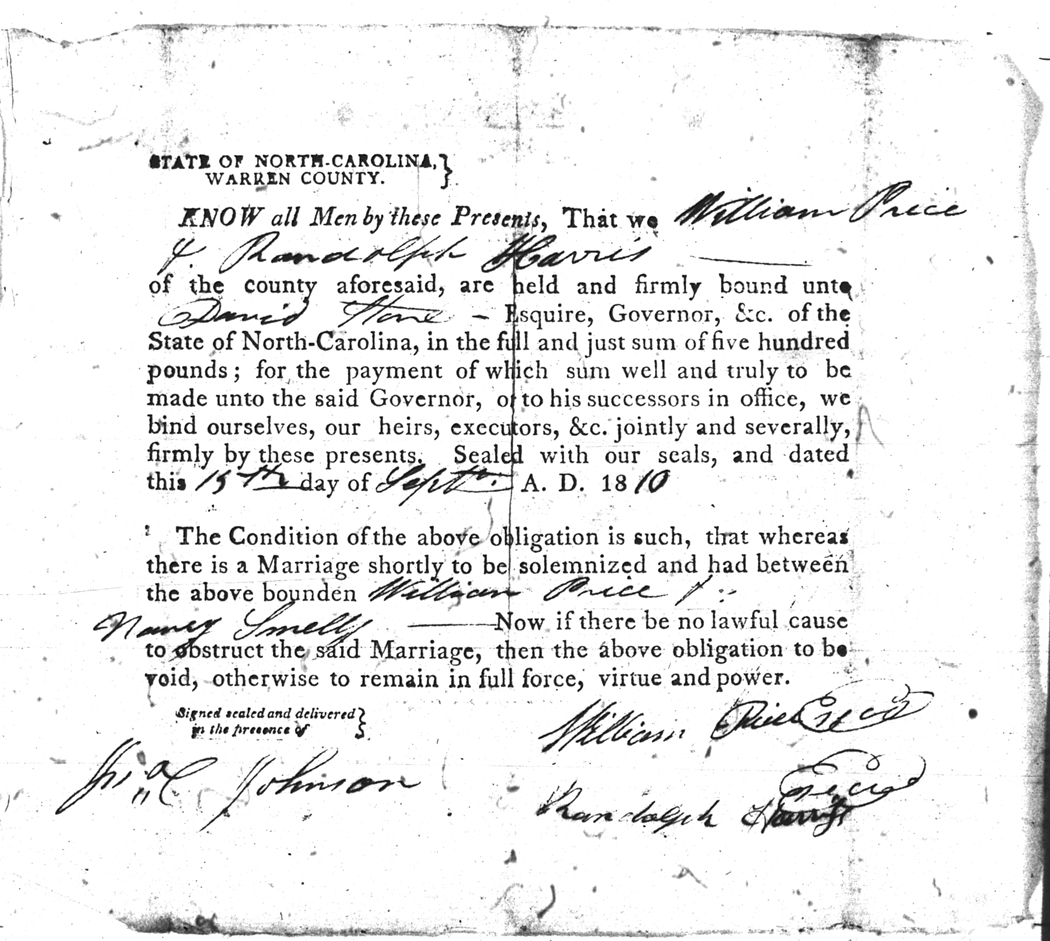 STATE OF NORTH-CAROLINA, }
WARREN COUNTY.
KNOW all Men by these Presents, That we William Price
& Randolph Harris
of the county aforesaid, are held and firmly bound unto
David Stone - Esquire, Governor, &c. of the
State of North-Carolina, in the full and just sum of five hundred
pounds; for the payment of which sum well and truly to be
made unto the said Governor, or to his successors in office, we
bind ourselves, our heirs, executors, &c. jointly and severally,
firmly by these presents. Sealed with our seals, and dated
this 15th day of Septr. A. D. 1810
The Condition of the above obligation is such, that whereas
there is a Marriage shortly to be solemnized and had between
the above bounden William Price &
Nancy Smelly Now if there be no lawful cause
to obstruct the said Marriage, then the above obligation to be
void, otherwise to remain in full force, virtue and power.
Signed sealed and delivered }
in the presence of
William Price Seal
Jno. C. Johnson
Randolph Harris Seal